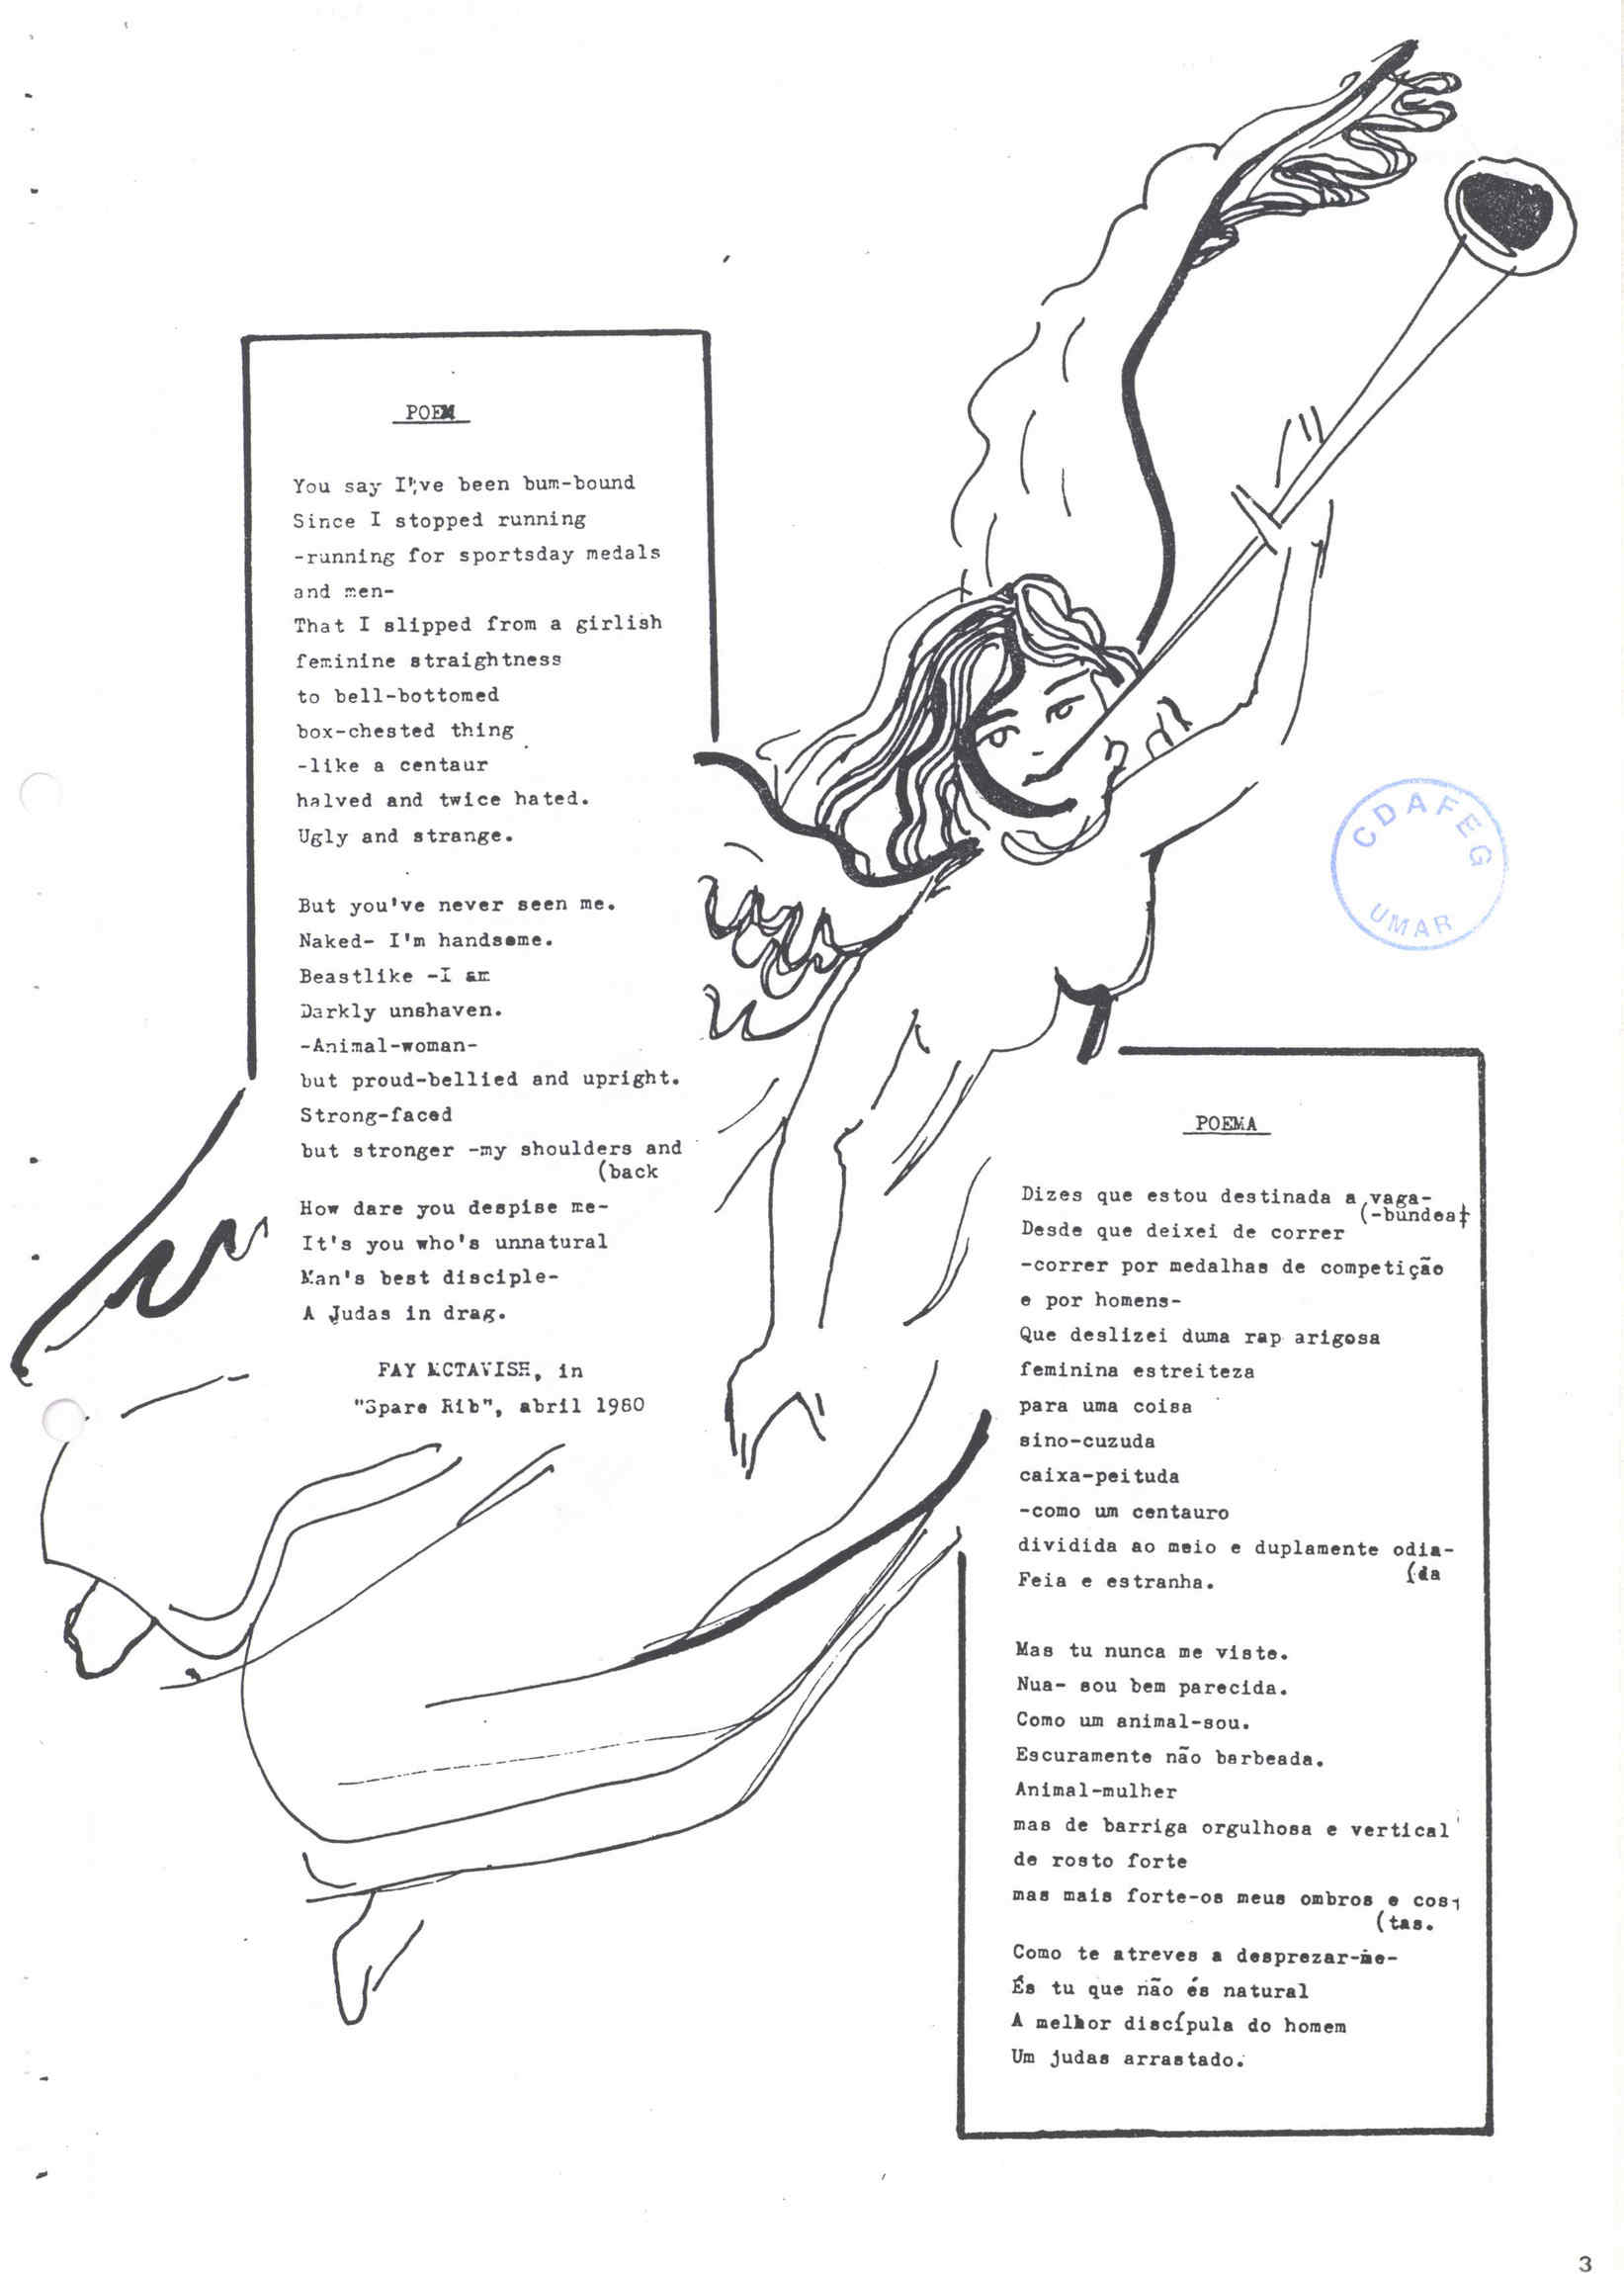 POEM
You say I've been bum-bound
Since I stopped running
-running for sportsday medals
and men-
That I slipped from a girlish
feminine straightness
to bell-bottomed
box-chested thing
-like a centaur
halved and twice hated.
Ugly and strange.
But you've never seen me.
Naked- I'm handsome.
Beastlike -I am
Darkly unshaven.
-Animal-woman-
but proud-bellied and upright.
Strong-faced
but stronger -my shoulders and
(back
How dare you despise me-
It's you who's unnatural
Man's best disciple-
A Judas in drag.
FAY MCTAVISH, in
"Spare Rib", abril 1980
CDAFEG
UMAR
POEMA
Dizes que estou destinada a vaga-
(-bundear
Desde que deixei de correr
-correr por medalhas de competição
e por homens-
Que deslizei duma rap arigosa
feminina estreiteza
para uma coisa
sino-cuzuda
caixa-peituda
-como um centauro
dividida ao meio e duplamente odia-
(da
Feia e estranha.
Mas tu nunca me viste.
Nua- sou bem parecida.
Como um animal-sou.
Escuramente não barbeada.
Animal-mulher
mas de barriga orgulhosa e vertical
de rosto forte
mas mais forte-os meus ombros e cos-
(tas.
Como te atreves a desprezar-me-
És tu que não és natural
A melhor discípula do homem
Um judas arrastado.
3